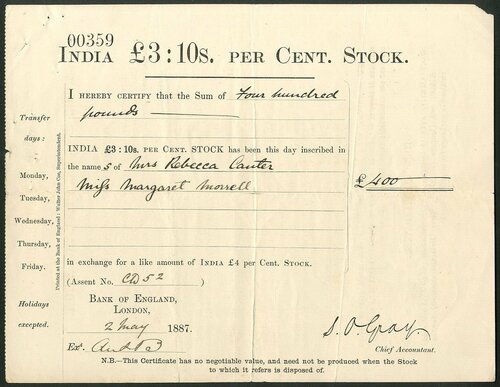 00359
INDIA £3:10s. PER CENT. STOCK.
I HEREBY CERTIFY that the Sum of Four hundred
pounds
INDIA £3:10s. PER CENT. STOCK has been this day inscribed in
the names of Mrs Rebecca Canter
Miss Margaret Morrell
£400
in exchange for a like amount of INDIA £4 per CENT. STOCK.
(Assent No. C/D 52)
BANK OF ENGLAND,
LONDON,
2 May 1887.
Ex^r.
S. O. Gray.
Chief Accountant.
N.B.—This Certificate has no negotiable value, and need not be produced when the Stock
to which it refers is disposed of.
Transfer
days:
Monday,
Tuesday,
Wednesday,
Thursday,
Friday.
Holidays
excepted.
Printed at the Bank of England: Walter John Coe, Superintendent.